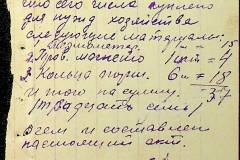 что его числа куплено
для нужд хозяйства
следующие материалы:
15
2. Пров. 1 шт = 4
3. Кольца 6 ш = 18
и того на сумму. 37
/тридцать семь/
В чем и составлен
настоящий акт.